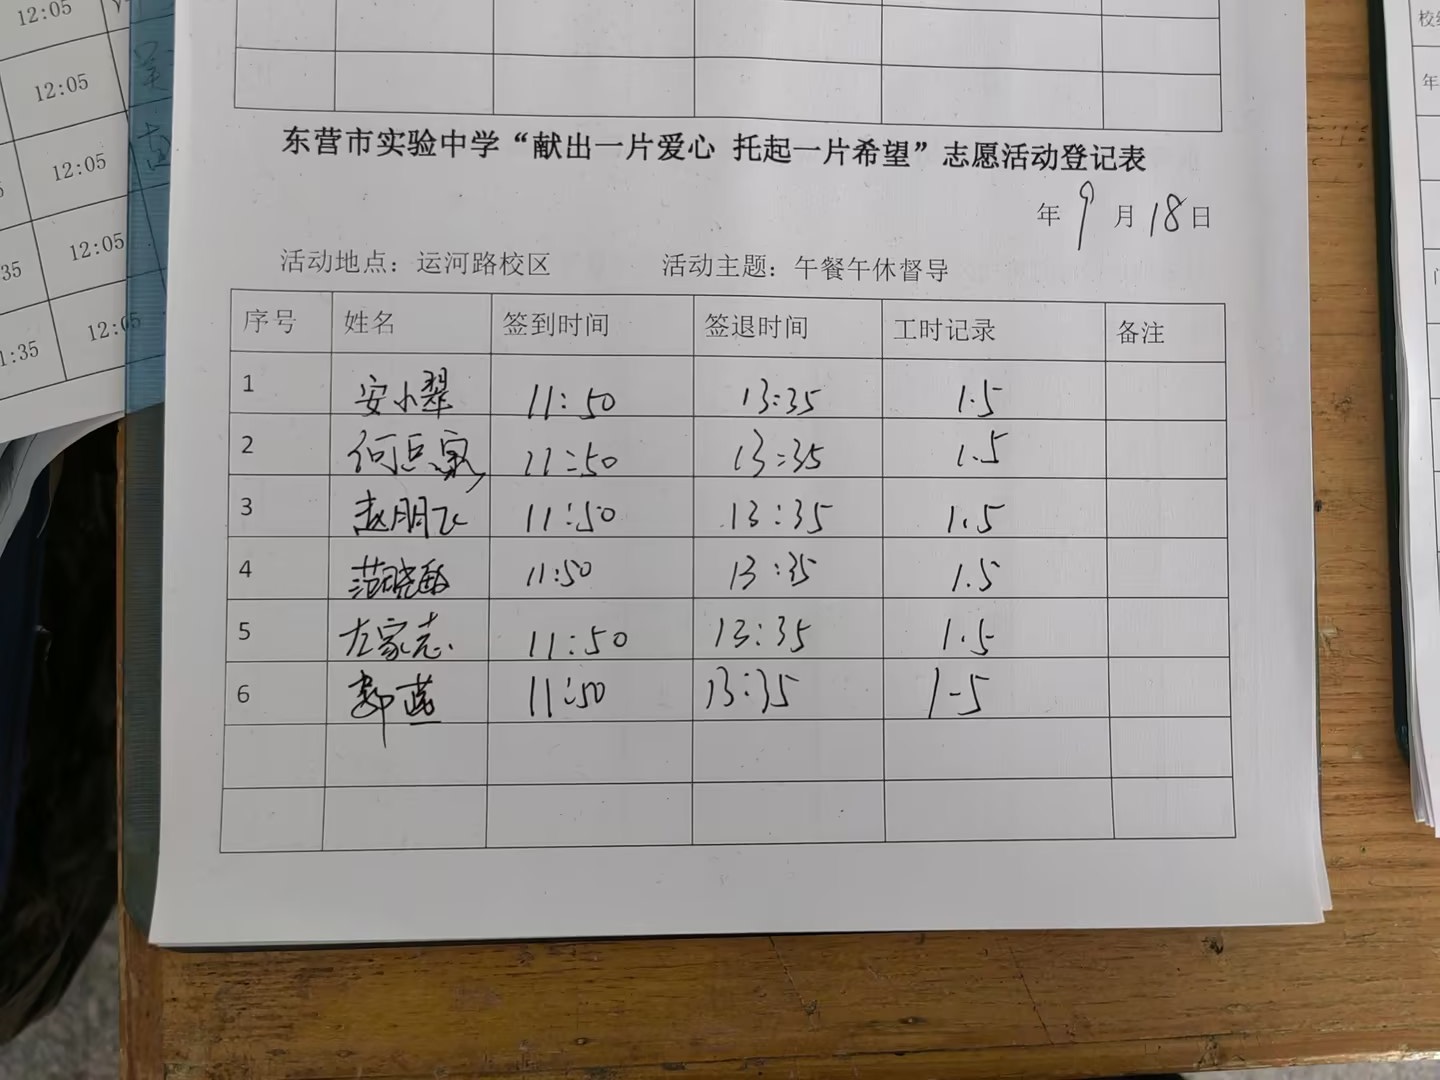 12:05
12:05
12:05
12:05
35
1:35
12:05
东营市实验中学“献出一片爱心 托起一片希望”志愿活动登记表
年 9 月 18 日
活动地点：运河路校区 活动主题：午餐午休督导
序号 姓名 签到时间 签退时间 工时记录 备注
1 安小翠 11:50 13:35 1.5
2 11:50 13:35 1.5
3 赵朋飞 11:50 13:35 1.5
4 范晓敏 11:50 13:35 1.5
5 左家志 11:50 13:35 1.5
6 11:50 13:35 1-5
年